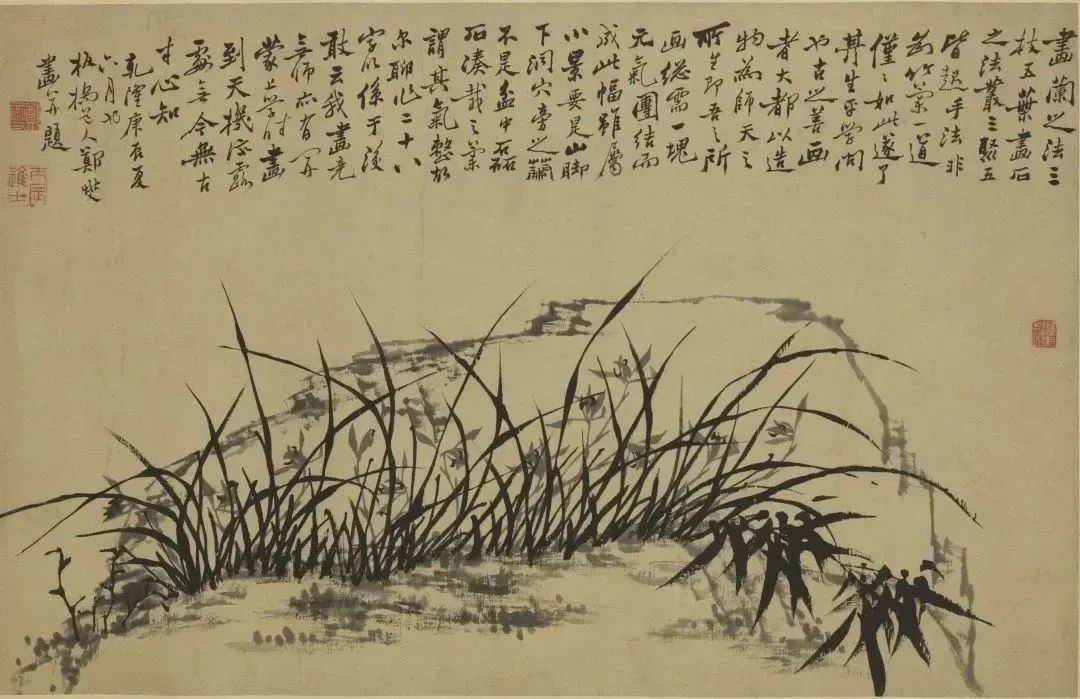 畫蘭之法三
枝五葉畫石
之法叢三聚五
皆起手法非
為竹蘭一道
僅〻如此遂了
其生平學問
也古之善画
者大都以造
物為師天之
所生即吾之所
画總需一塊
元氣團結而
成此幅雖屬
小景要是山脚
下洞穴旁之蘭
不是盆中磊
石湊栽之蘭
謂其氣整故
尔聊作二十八
字以係于後
敢云我畫竟
無師亦有開
蒙上學時畫
到天機流露
處無今無古
寸心知
乾隆庚辰夏
六月
板橋道人鄭燮
畫并題
丙辰進士